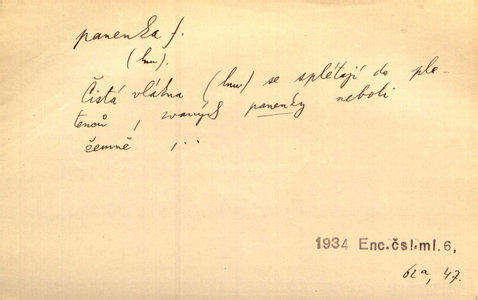 panenka f.
(lnu).
Čistá vlákna (lnu) se splétají do ple-
tenců, zvaných panenky neboli
žemně, ..
1934 Enc.čsl.ml. 6,
62a, 47.